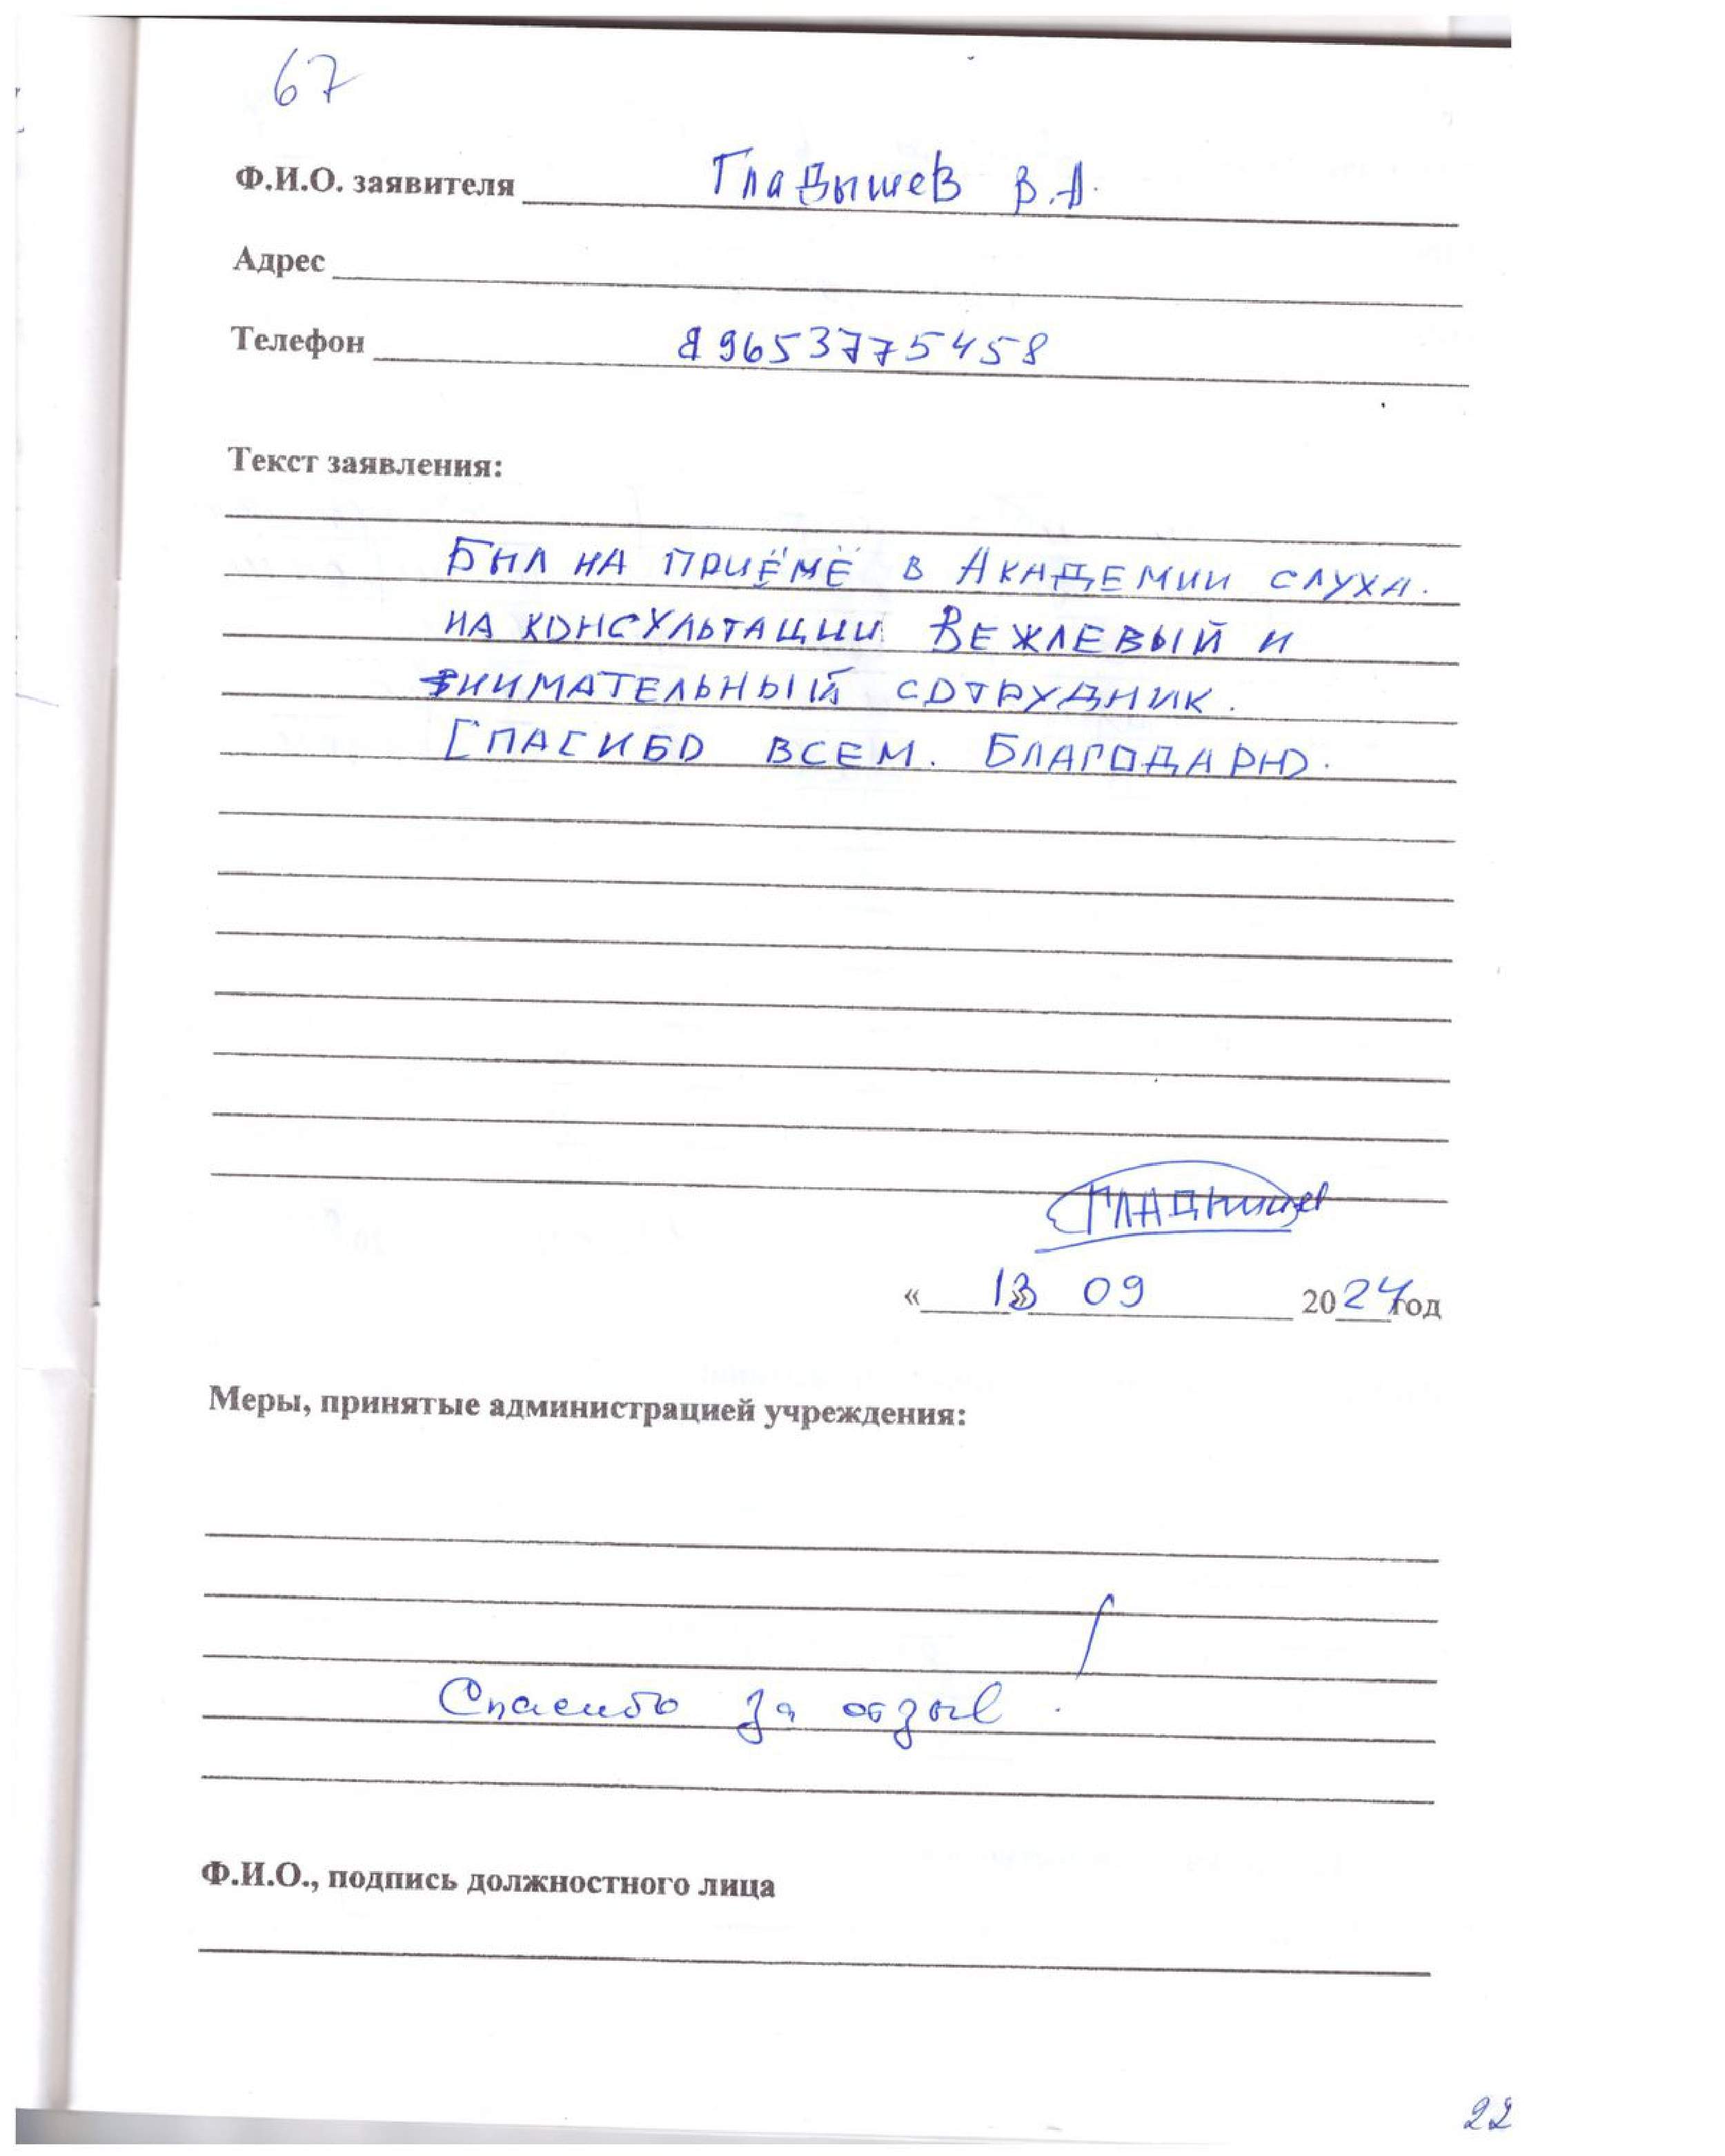 67
Ф.И.О. заявителя Гладышев В.А.
Адрес
Телефон 89653775458
Текст заявления:
Был НА ПРИЁМЕ В АКАДЕМИИ СЛУХА.
НА КОНСУЛЬТАЦИИ ВЕЖЛЕВЫЙ И
ВНИМАТЕЛЬНЫЙ СОТРУДНИК.
СПАСИБО ВСЕМ. БЛАГОДАРЮ.
ГЛАДышев
« 13 » 09 2024 год
Меры, принятые администрацией учреждения:
Спасибо за отзыв.
Ф.И.О., подпись должностного лица
22